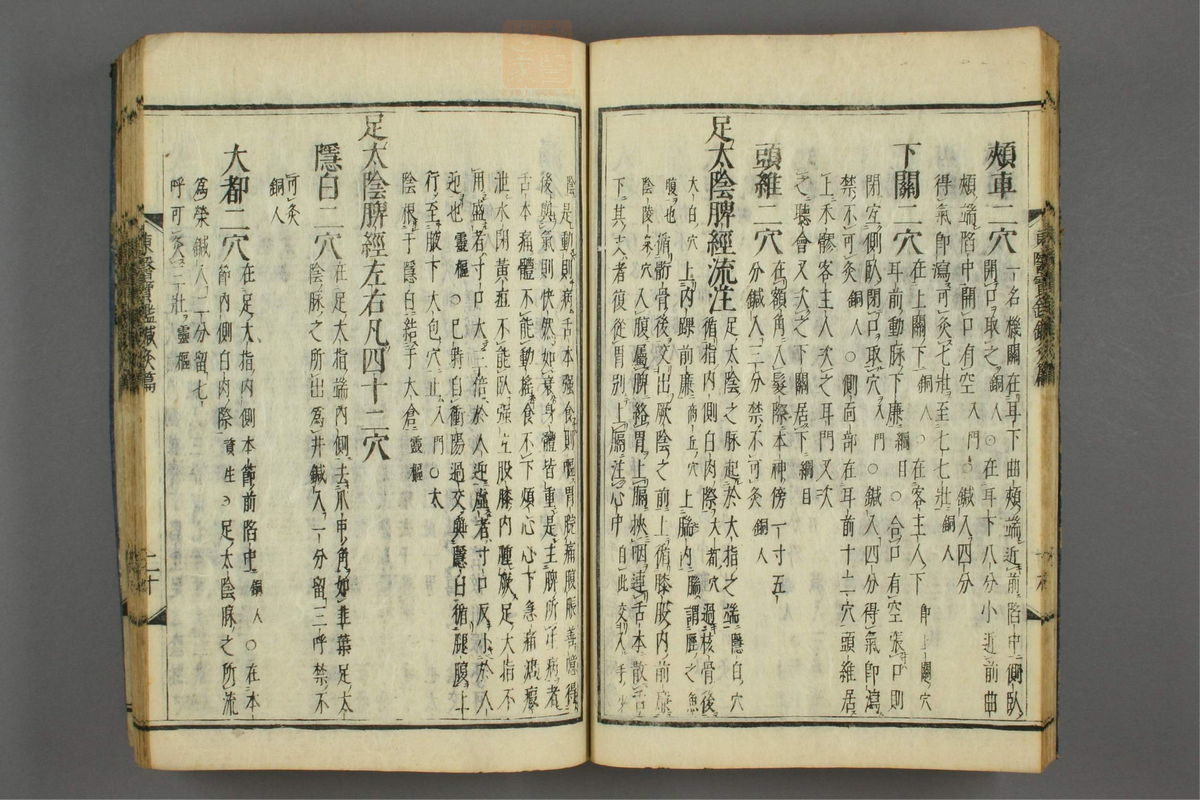 頰車二穴 一名機關在耳下曲頰端近前陷中側臥
開口取之銅人○在耳下八分小近前曲
頰端陷中開口有空入門○鍼入四分
得氣卽瀉可灸七壯至七七壯銅人
下關二穴 在上關下銅人○在客主人下
耳前動脉下廉綱目○合口有空張口則
閉宜側臥閉口取穴入門○鍼入四分得氣卽瀉
禁不可灸銅人○側面部在耳前十二穴頭維居
上禾髎客主人次之耳門又次
之聽會又次之下關居下綱目
頭維二穴 在額角入髮際本神傍一寸五
分鍼入三分禁不可灸銅人
足太陰脾經流注 足太陰之脉起於大指之端隱白穴
循指內側白肉際大都穴過核骨後
太白穴上內踝前廉商丘穴上腨內腨謂脛之魚
腹也循䯒骨後交出厥陰之前上循膝股內前廉
陰陵泉穴入腹屬脾絡胃上膈挾咽連舌本散舌
下其支者復從胃別上膈注心中自此交入手少
陰是動則病舌本强食則嘔胃脘痛腹脹善噫得
後與氣則快然如衰身體皆重是主脾所生病者
舌本痛體不能動搖食不下煩心心下急痛溏瘕
泄水閉黃疸不能臥强立股膝內腫厥足大指不
用盛者寸口大三倍於人迎虛者寸口反小於人
迎也靈樞○巳時自衝陽過交與隱白循腿腹上
行至腋下大包穴止入門○太
陰根于隱白結于太倉靈樞
足太陰脾經左右凡四十二穴
隱白二穴 在足大指端內側去爪甲角如韭葉足太
陰脉之所出爲井鍼入一分留三呼禁不
可灸
銅人
大都二穴 在足大指內側本節前陷中銅人○在本
節內側白肉際資生○足太陰脉之所流
爲滎鍼入二分留七
呼可灸三壯靈樞